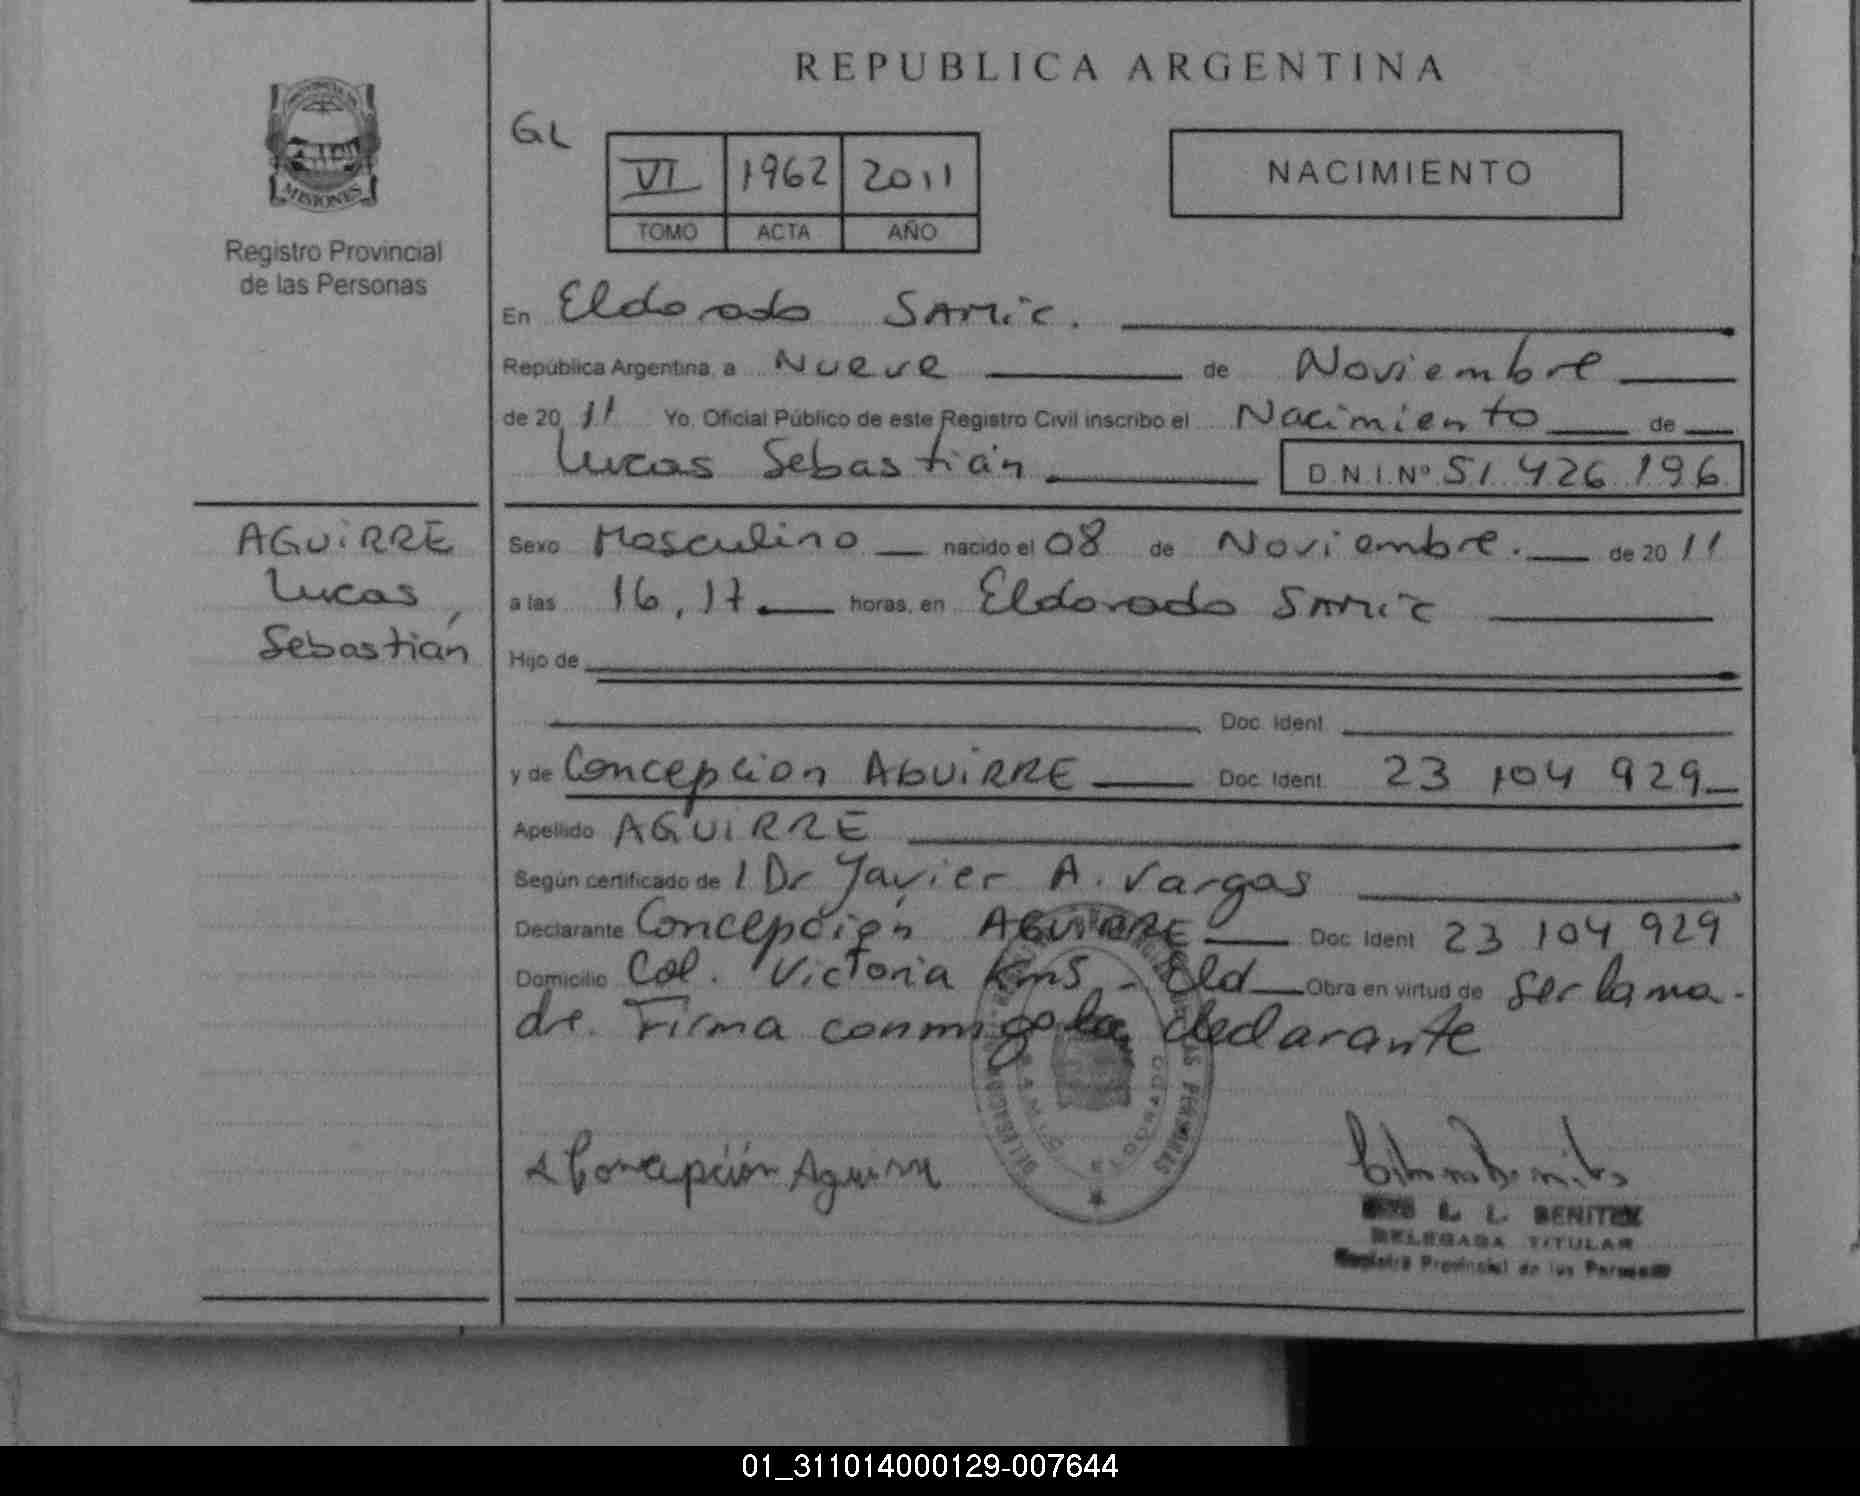 REPUBLICA ARGENTINA
PROVINCIA DE
MISIONES
Registro Provincial
de las Personas
GL
VI 1962 2011
TOMO ACTA AÑO
NACIMIENTO
En Eldorado SAMic.
República Argentina, a Nueve de Noviembre
de 20 11 Yo, Oficial Público de este Registro Civil inscribo el Nacimiento de
Lucas Sebastián D.N.I.Nº 51.426.196
AGUiRRE
Lucas,
Sebastián
Sexo Masculino nacido el 08 de Noviembre. de 20 11
a las 16,17 horas, en Eldorado SAMic
Hijo de
Doc. Ident.
y de Concepcion AGUiRRE Doc. Ident. 23 104 929
Apellido AGUiRRE
Según certificado de l Dr Javier A. Vargas
Declarante Concepción AGUiRRE Doc. Ident. 23 104 929
Domicilio Col. Victoria Km5 - Eld Obra en virtud de ser la ma-
dre. Firma conmigo la declarante
Concepción Aguirre
L. L. BENITEZ
DELEGADA TITULAR
Registro Provincial de las Personas
01_311014000129-007644